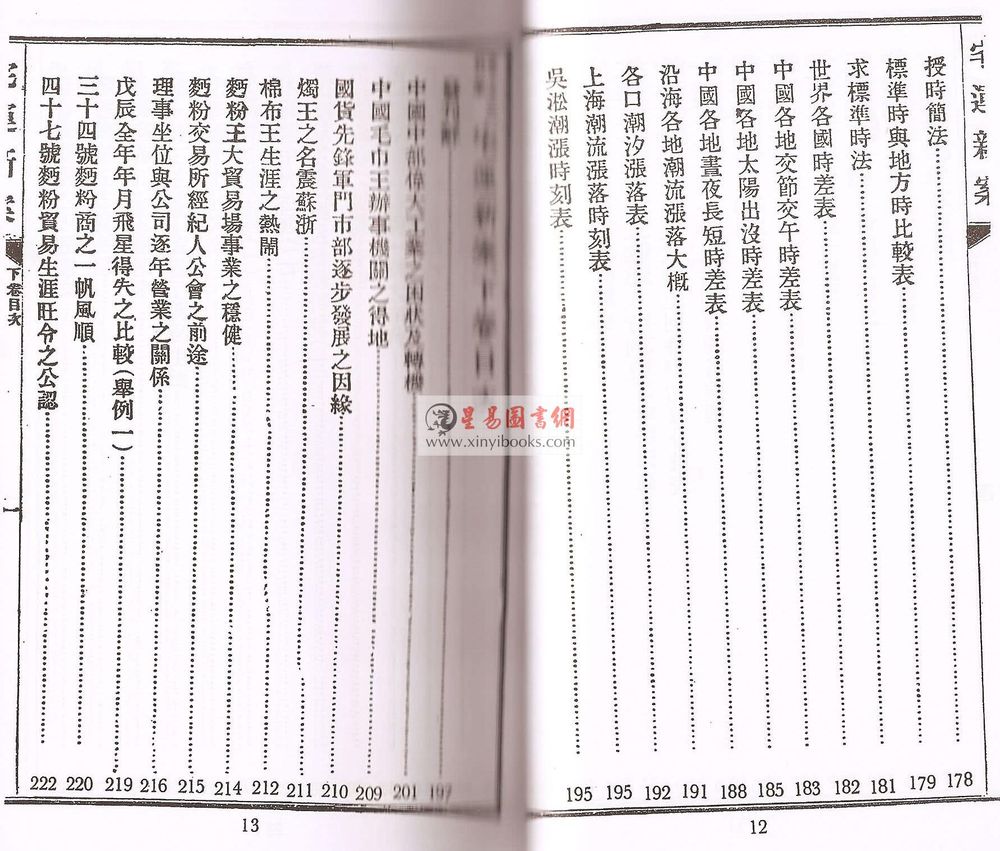 宅運新案
授時簡法 178
標準時與地方時比較表 179
求標準時法 181
世界各國時差表 182
中國各地交節交午時差表 183
中國各地太陽出沒時差表 185
中國各地晝夜長短時差表 188
沿海各地潮流漲落大概 191
各口潮汐漲落表 192
上海潮流漲落時刻表 195
吳淞潮漲時刻表 195
12
197
中國中部偉大工業之困狀及轉機 201
中國毛巾王辦事機關之得地 209
國貨先錄軍門市部逐步發展之因緣 210
燭王之名震蘇浙 211
棉布王生涯之熱鬧 212
麪粉王大貿易場事業之穩健 214
麪粉交易所經紀人公會之前途 215
理事坐位與公司逐年營業之關係 216
戊辰全年年月飛星得失之比較(舉例一) 219
三十四號麪粉商之一帆風順 220
四十七號麪粉貿易生涯旺令之公認 222
下卷目次
一
13
星易圖書網
www.xinyibooks.com